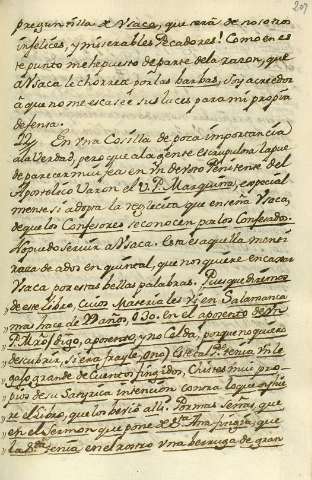 207
preguntilla de Ysaca, que será de nosotros
infelices, y miserables Pecadores! Como en es
te punto me he puesto de parte de la razon, que
a Ysaca le chorrea por las barbas, soy acreedor
à que no me escaseè sus luces para mi propria
defensa.
En vna Cosilla de poca importancia
a la Verdad, pero que a la gente escrupulosa pue
de parecer muy fea en vn devoto Penitente del
Apostolico Varon el V. P. Margurina, especial
mente si adopta la reglecita que enseña Ysaca,
de que los Confesores se conocen por los Confesados.
No puedo servir a Ysaca. Esta es aquella menti
raza de a dos en quintal, que nos quiere encajar
Ysaca por estas bellas palabras. Pues que diremos
de este Libro, cuios Materiales vi en Salamanca
mas hace de 22 años, O Do. En el aposento de Vn
P. Mro, digo, aposento, y no Celda, porque no quiero
descubrir, si era frayle, ò no) el tal Pe. tenia vn le
gajo grande de Cuentos fingidos, Chistes muy pro
prios de su Satyrica intencion contra lo que
re el Libro, que los hevisto alli. Por mas Señas, que
en el Sermon que pone de Sta. Ana fingia, que
la Sta. tenia en el rostro vna berruga de gran